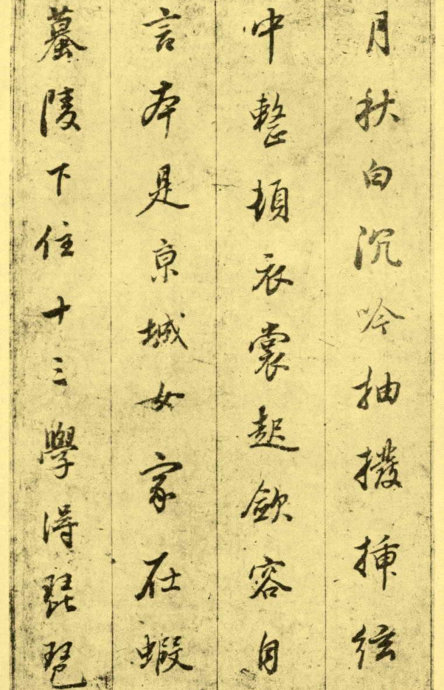 月秋白沉吟抽撥揷絃
中整頓衣裳起斂容自
言本是京城女家在蝦
蟇陵下住十三學得琵琶